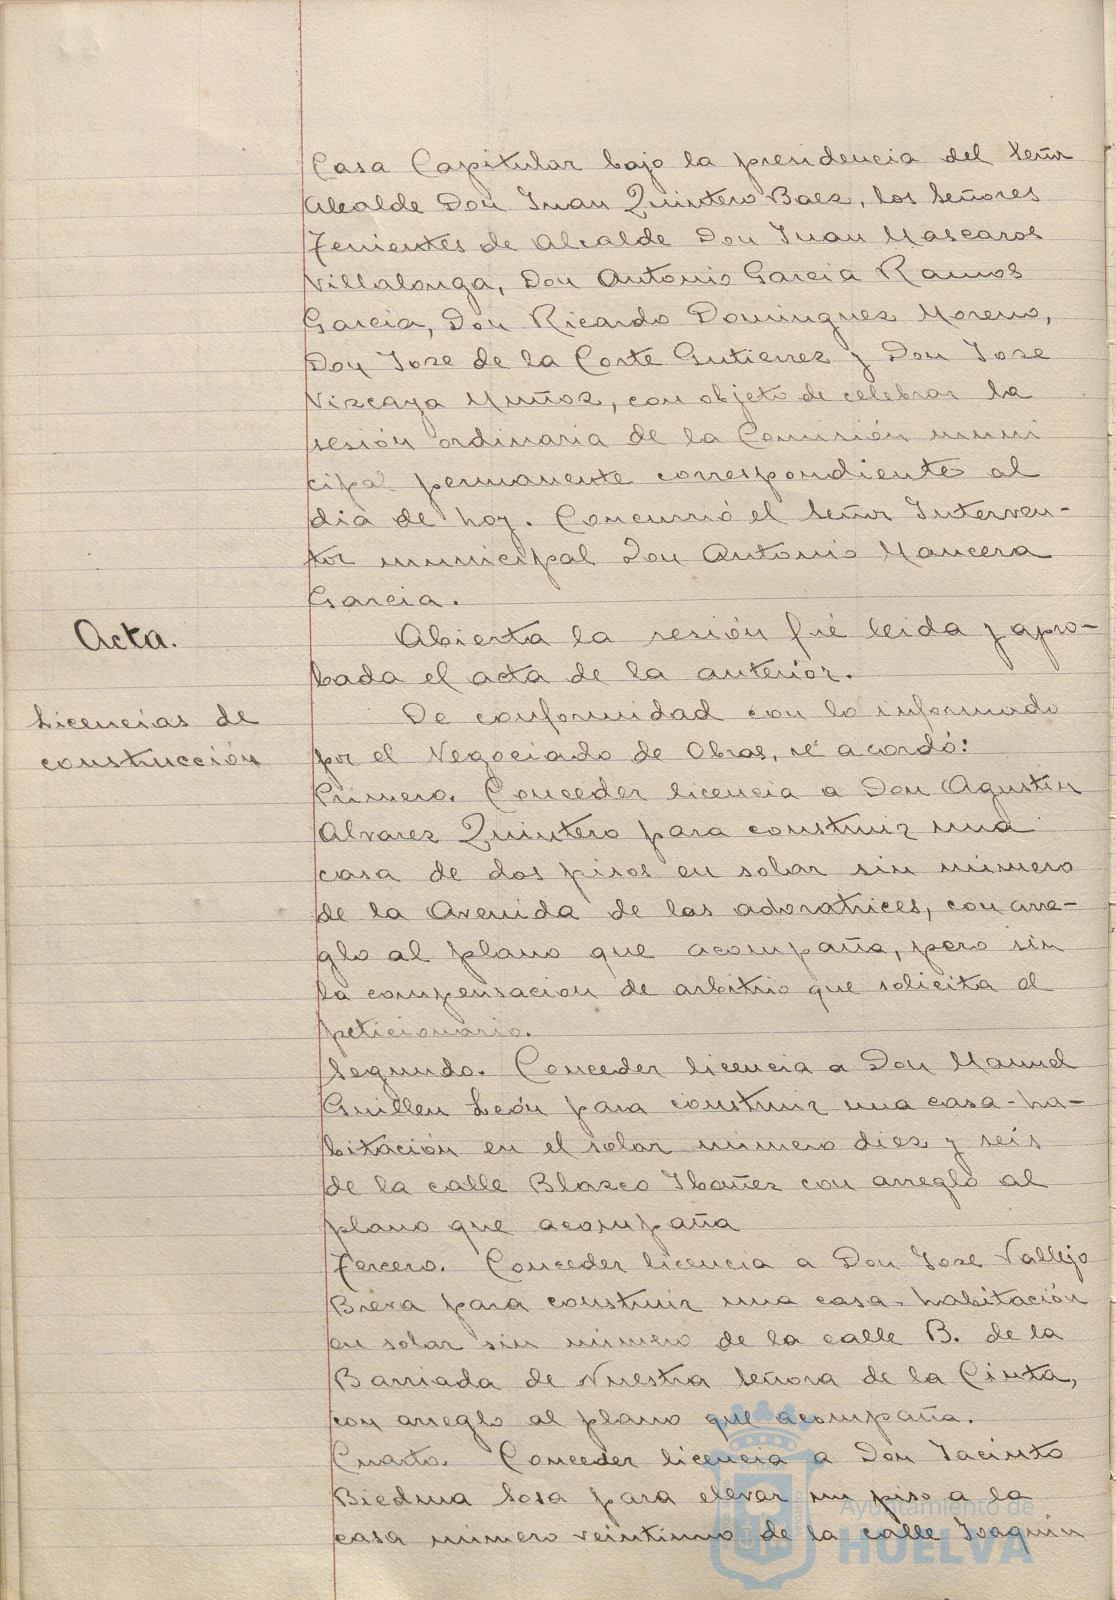 Casa Capitular bajo la presidencia del Señor
Alcalde Don Juan Quintero Baez, los Señores
Tenientes de Alcalde Don Juan Mascaros
Villalonga, Don Antonio Garcia Ramos
Garcia, Don Ricardo Dominguez Moreno,
Don Jose de la Corte Gutierrez y Don Jose
Vizcaya Muñoz, con objeto de celebrar la
sesión ordinaria de la Comisión muni
cipal permanente correspondiente al
dia de hoy. Concurrió el Señor Interven-
tor municipal Don Antonio Mancera
Garcia.
Acta.
Abierta la sesión fué leida y apro-
bada el acta de la anterior.
Licencias de
construcción
De conformidad con lo informado
por el Negociado de Obras, se acordó:
Primero. Conceder licencia a Don Agustin
Alvarez Quintero para construir una
casa de dos pisos en solar sin número
de la Avenida de las adoratrices, con arre-
glo al plano que acompaña, pero sin
la compensacion de arbitrio que solicita el
peticionario.
Segundo. Conceder licencia a Don Manuel
Guillen León para construir una casa-ha-
bitación en el solar número diez y seis
de la calle Blasco Ibañez con arreglo al
plano que acompaña
Tercero. Conceder licencia a Don Jose Vallejo
Breva para construir una casa-habitación
en solar sin número de la calle B. de la
Barriada de Nuestra Señora de la Cinta,
con arreglo al plano que acompaña.
Cuarto. Conceder licencia a Don Jacinto
Biedma Sosa para elevar un piso a la
casa número veintiuno de la calle Joaquin
Ayuntamiento de
HUELVA